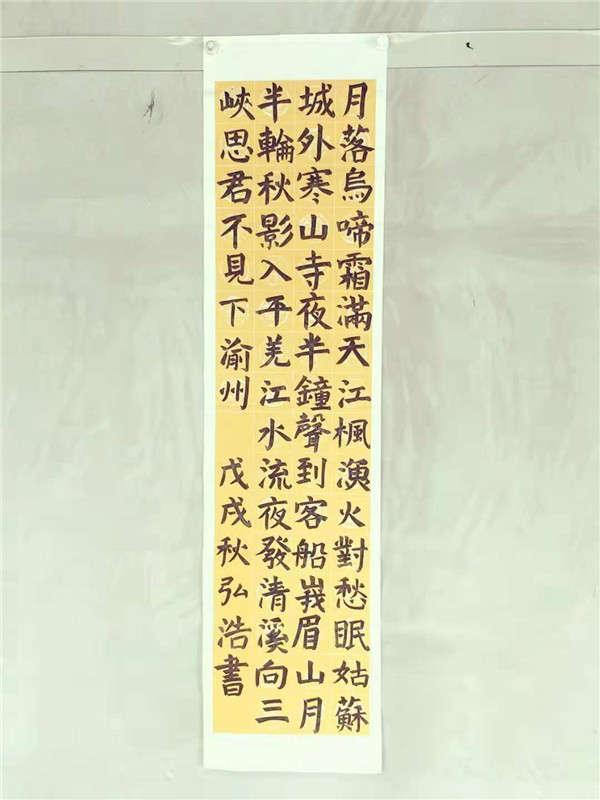 月落烏啼霜滿天江楓漁火對愁眠姑蘇
城外寒山寺夜半鐘聲到客船峩眉山月
半輪秋影入平羌江水流夜發清溪向三
峽思君不見下渝州 戊戌秋弘浩書